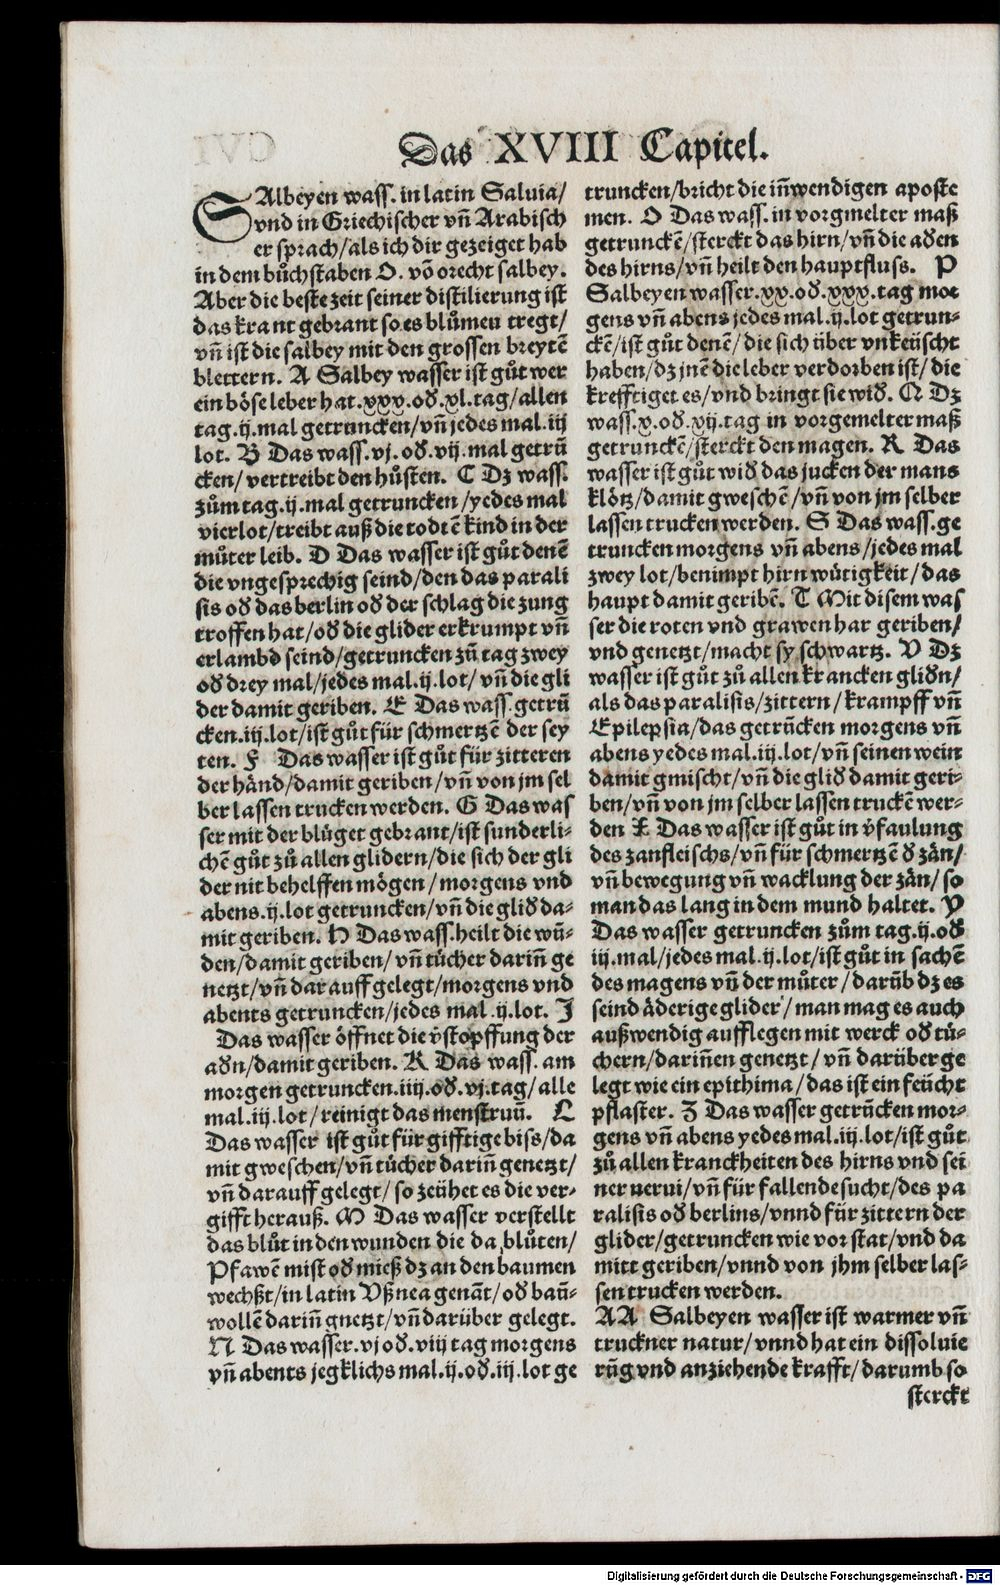 Das XVIII Capitel.
SAlbeyen wass. in latin Saluia/
vnd in Griechischer vñ Arabisch
er sprach/als ich dir gezeiget hab
in dem bůchstaben O. võ orecht salbey.
Aber die beste zeit seiner distilierung ist
das kraut gebrant so es blůmen tregt/
vñ ist die salbey mit den grossen breytẽ
blettern. A Salbey wasser ist gůt wer
ein böse leber hat.xxx.oð.xl.tag/allen
tag.ij.mal getruncken/vñ jedes mal.iij
lot. B Das wass.vj.oð.vij.mal getrũ
cken/vertreibt den hůsten. C Dz wass.
zům tag.ij.mal getruncken/yedes mal
vier lot/treibt auß die todtẽ kind in der
můter leib. D Das wasser ist gůt denẽ
die vngesprechig seind/den das parali
sis oð das berlin oð der schlag die zung
troffen hat/oð die glider erkrumpt vñ
erlambð seind/getruncken zů tag zwey
oð drey mal/jedes mal.ij.lot/vñ die gli
der damit geriben. E Das wass.getrũ
cken.iij.lot/ist gůt für schmertzẽ der sey
ten. F Das wasser ist gůt für zitteren
der händ/damit geriben/vñ von jm sel
ber lassen trucken werden. G Das was
ser mit der blůget gebrant/ist sunderli-
chẽ gůt zů allen glidern/die sich der gli
der nit behelffen mögen/morgens vnd
abens.ij.lot getruncken/vñ die glið da-
mit geriben. H Das wass.heilt die wũ-
den/damit geriben/vñ tůcher dariñ ge
netzt/vñ darauff gelegt/morgens vnd
abents getruncken/jedes mal.ij.lot. I
Das wasser öffnet die v̉stopffung der
aðn/damit geriben. K Das wass. am
morgen getruncken.iiij.oð.vj.tag/alle
mal.iij.lot/reinigt das menstruũ. L
Das wasser ist gůt für gifftige biss/da
mit gweschen/vñ tůcher dariñ genetzt/
vñ darauff gelegt/so zeühet es die ver-
gifft herauß. M Das wasser verstellt
das blůt in den wunden die da blůten/
Pfawẽ mist oð mieß dz an den baumen
wechßt/in latin Vßnea genãt/oð baũ-
wollẽ dariñ gnetzt/vñ darüber gelegt.
N Das wasser.vj oð.viij tag morgens
vñ abents jegklichs mal.ij.oð.iij.lot ge
truncken/bricht die iñwendigen aposte
men. O Das wass. in vorgmelter maß
getrunckẽ/sterckt das hirn/vñ die aðen
des hirns/vñ heilt den hauptfluss. P
Salbeyen wasser.xx.oð.xxx.tag mor
gens vñ abens jedes mal.ij.lot getrun-
ckẽ/ist gůt denẽ/die sich über vnkeüscht
haben/dz jnẽ die leber verdorben ist/die
krefftiget es/vnd bringt sie wið. Q Dz
wass.x.oð.xij.tag in vorgemelter maß
getrunckẽ/sterckt den magen. R Das
wasser ist gůt wið das jucken der mans
klötz/damit gweschẽ/vñ von jm selber
lassen trucken werden. S Das wass.ge
truncken morgens vñ abens/jedes mal
zwey lot/benimpt hirn wütigkeit/das
haupt damit geribẽ. T Mit disem was
ser die roten vnd grawen har geriben/
vnd genetzt/macht sy schwartz. V Dz
wasser ist gůt zů allen krancken gliðn/
als das paralisis/zittern/krampff vñ
Epilepsia/das getrũcken morgens vñ
abens yedes mal.iij.lot/vñ seinen wein
damit gmischt/vñ die glið damit geri-
ben/vñ von jm selber lassen truckẽ wer-
den X Das wasser ist gůt in v̉faulung
des zanfleischs/vñ für schmertzẽ ð zän/
vñ bewegung vñ wacklung der zän/so
man das lang in dem mund haltet. Y
Das wasser getruncken zům tag.ij.oð
iij.mal/jedes mal.ij.lot/ist gůt in sachẽ
des magens vñ der můter/darũb dz es
seind äderige glider/man mag es auch
außwendig aufflegen mit werck oð tü-
chern/dariñen genetzt/vñ darüber ge
legt wie ein epithima/das ist ein feücht
pflaster. Z Das wasser getrũcken mor-
gens vñ abens yedes mal.iij.lot/ist gůt
zů allen kranckheiten des hirns vnd sei
ner nerui/vñ für fallende sucht/des pa
ralisis oð berlins/vnnd für zittern der
glider/getruncken wie vor stat/vnd da
mitt geriben/vnnd von jhm selber las-
sen trucken werden.
AA Salbeyen wasser ist warmer vñ
truckner natur/vnnd hat ein dissoluie
rũg vnd anziehende krafft/darumb so
sterckt
Digitalisierung gefördert durch die Deutsche Forschungsgemeinschaft - DFG